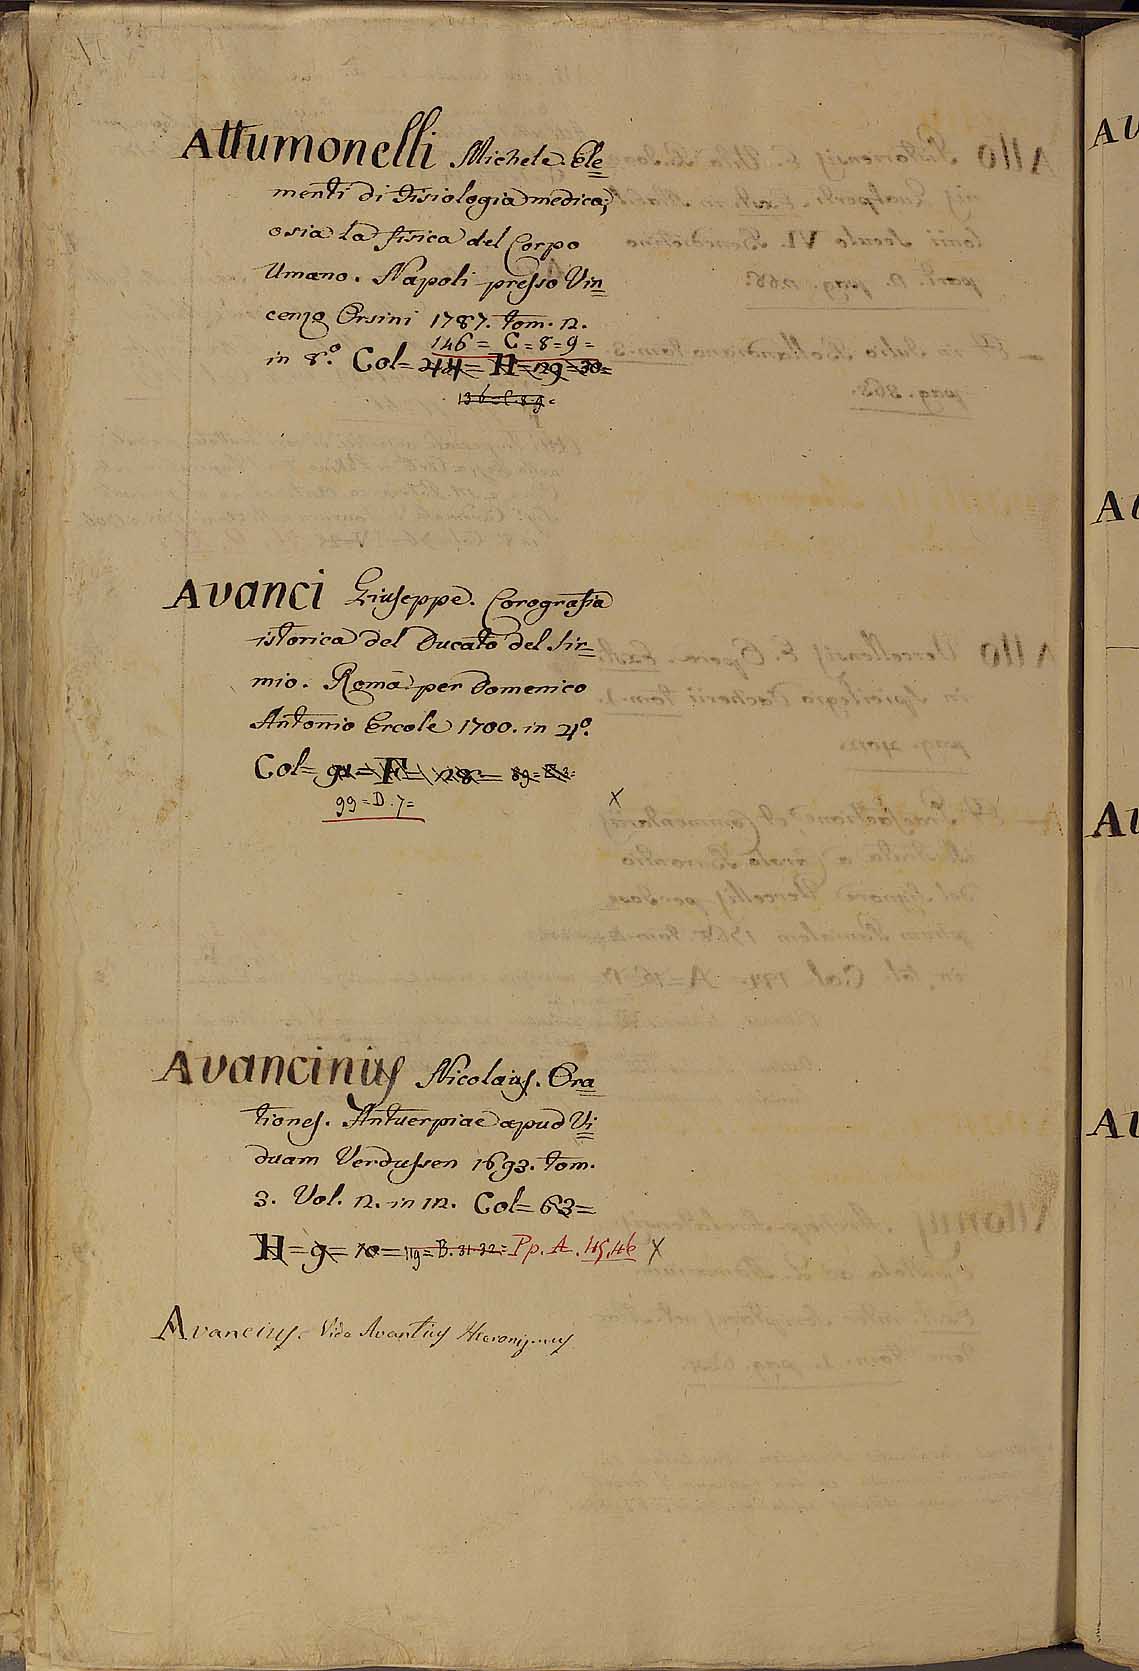 Attumonelli Michele. Ele=
menti di Fisiologia medica,
osia la fisica del Corpo
Umano. Napoli presso Vin=
cenzo Orsini 1787. tom. 2.
146 = C = 8 = 9 =
in 8.º Col= 44 = H = 129 = 30 =
136 = C. 8. 9 =
Avanci Giuseppe. Corografia
istorica del Ducato del Sir=
mio. Roma per Domenico
Antonio Ercole 1700. in 4º.
Col= 91 = F = 28 = 89 =
99 = D. 7 =
X
Avancinius Nicolaus. Ora=
tiones. Antuerpiae apud Vi=
duam Verdussen 1693. tom.
3. Vol. 2. in 12. Col= 63 =
H = 9 = 10 = 119 = B. 31. 32 = Pp. A. 45.46 X
Avancius. Vide Avantius Hieronymus